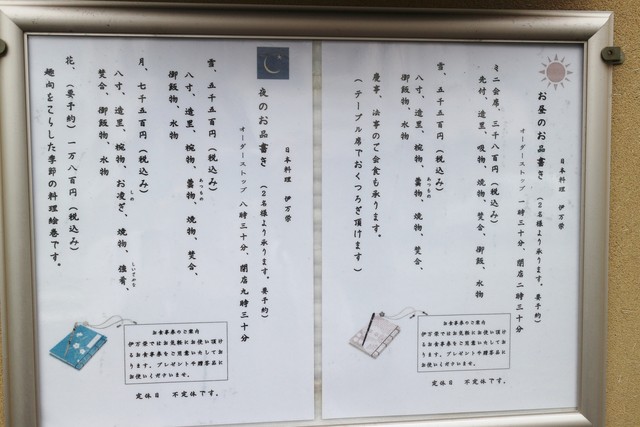 日本料理 伊万栄
お昼のお品書き (2名様より承ります。要予約)
オーダーストップ 一時三十分、閉店二時三十分
ミニ会席、三千八百円(税込み)
先付、造里、吸物、焼物、焚合、御飯、水物
雪、五千五百円(税込み)
八寸、造里、椀物、蓋物、焼物、焚合、
あつもの
御飯物、水物
慶事、法事のご会食も承ります。
(テーブル席でおくつろぎ頂けます)
お食事券のご案内
伊万栄ではお気軽にお使い頂け
るお食事券をご用意いたしてお
ります。プレゼントや贈答品に
お使いくださいませ。
定休日 不定休です。
日本料理 伊万栄
夜のお品書き (2名様より承ります。要予約)
オーダーストップ 八時三十分、閉店九時三十分
雪、五千五百円(税込み)
八寸、造里、椀物、蓋物、焼物、焚合、
あつもの
御飯物、水物
月、七千五百円(税込み)
八寸、造里、椀物、お凌ぎ、焼物、強肴、
しの
しいざかな
焚合、御飯物、水物
花、(要予約)一万八百円(税込み)
趣向をこらした季節の料理絵巻です。
お食事券のご案内
伊万栄ではお気軽にお使い頂け
るお食事券をご用意いたしてお
ります。プレゼントや贈答品に
お使いくださいませ。
定休日 不定休です。